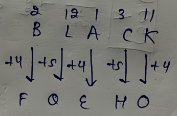 2 12 1 3 11
B L A C K
+4 +5 +4 +5 +4
F Q E H O